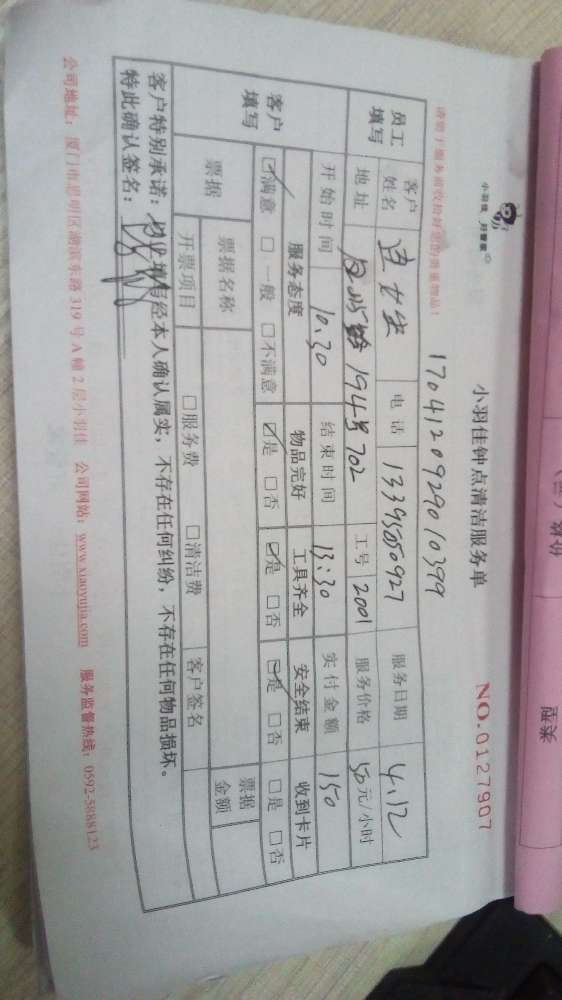 小羽佳 好管家
小羽佳钟点清洁服务单
NO.0127907
1704120929010399
请您于服务前收拾好您的贵重物品!
员工填写
客户姓名
女士
电话 13395050927
服务日期 4.12
地址
194号702
工号 2001
服务价格 50元/小时
开始时间 10:30
结束时间 13:30
实付金额 150
客户填写
服务态度 物品完好 工具齐全 安全结束 收到卡片
☑满意 □一般 □不满意 ☑是 □否 ☑是 □否 ☑是 □否 □是 □否
票据
票据名称
票据金额
开票项目 □服务费 □清洁费 客户签名
客户特别承诺:
经本人确认属实,不存在任何纠纷,不存在任何物品损坏。
特此确认签名:
公司地址:厦门市思明区湖滨东路319号A幢2层小羽佳 公司网站:www.xiaoyujia.com 服务监督热线:0592-5888123